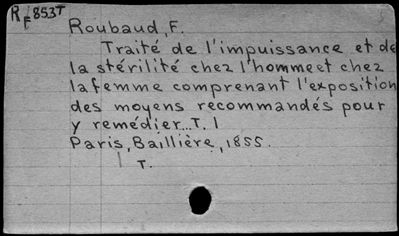 R/F 853T
Roubaud, F.
Traité de l'impuissance et de
la stérilité chez l'homme et chez
la femme comprenant l'exposition
des moyens recommandés pour
y remédier...T. 1
Paris, Baillière, 1855.
1 T.